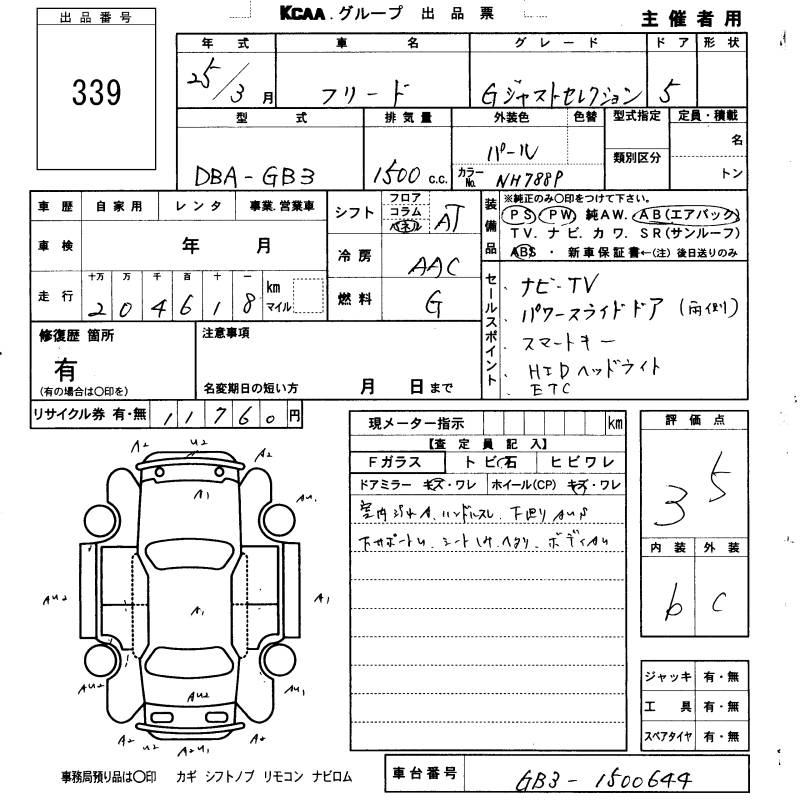 KCAA.グループ 出品票
主催者用
出品番号
339
年式 車名 グレード ドア 形状
25/3月 フリード Gジャストセレクション 5
型式 排気量 外装色 色替 型式指定 定員・積載
DBA-GB3 1500 c.c. パール カラーNo. NH788P 類別区分 名 トン
車歴 自家用 レンタ 事業.営業車
車検 年 月
走行 十万 万 千 百 十 一 km マイル
204618
シフト フロア コラム パネル AT
冷房 AAC
燃料 G
装備品 ※純正のみ〇印をつけて下さい。
PS PW 純AW. AB(エアバック)
TV. ナビ. カワ. SR(サンルーフ)
ABS ・ 新車保証書←(注) 後日送りのみ
セールスポイント
ナビ・TV
パワースライドドア (両側)
スマートキー
HIDヘッドライト
ETC
修復歴 箇所
有
(有の場合は〇印を)
注意事項
名変期日の短い方 月 日まで
リサイクル券 有・無 11760円
現メーター指示 km
【査定員記入】
Fガラス トビ石 ヒビワレ
ドアミラー キズ・ワレ ホイール(CP) キズ・ワレ
室内汚れA. ハンドルスレ. 下廻りAUS
下サポートU. シート
ヘタリ. ボディAU
評価点
3.5
内装 外装
b C
ジャッキ 有・無
工具 有・無
スペアタイヤ 有・無
A2 U2 A2
A1
AU1
AU2 A1 A1
AU2 AU2 AU1
A2 A2 AU1 A2
事務局預り品は〇印 カギ シフトノブ リモコン ナビロム
車台番号 GB3-1500644